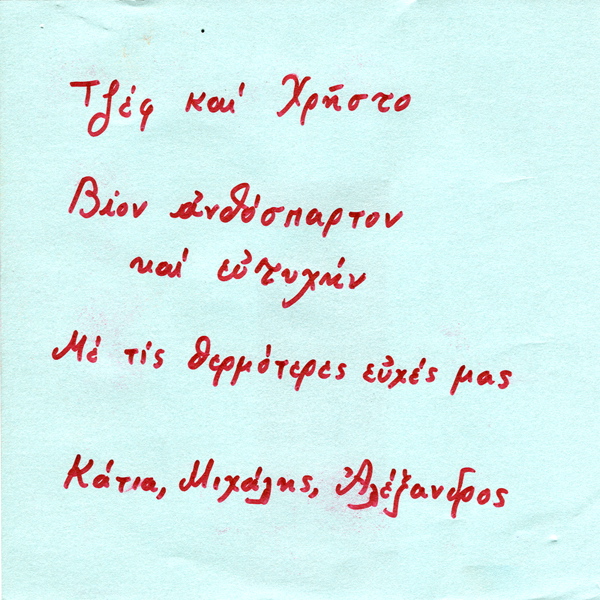 Τζέφ καί Χρῆστο
Βίον ἀνθόσπαρτον
καί εὐτυχήν
Μέ τίς θερμότερες εὐχές μας
Κάτια, Μιχάλης, Ἀλέξανδρος